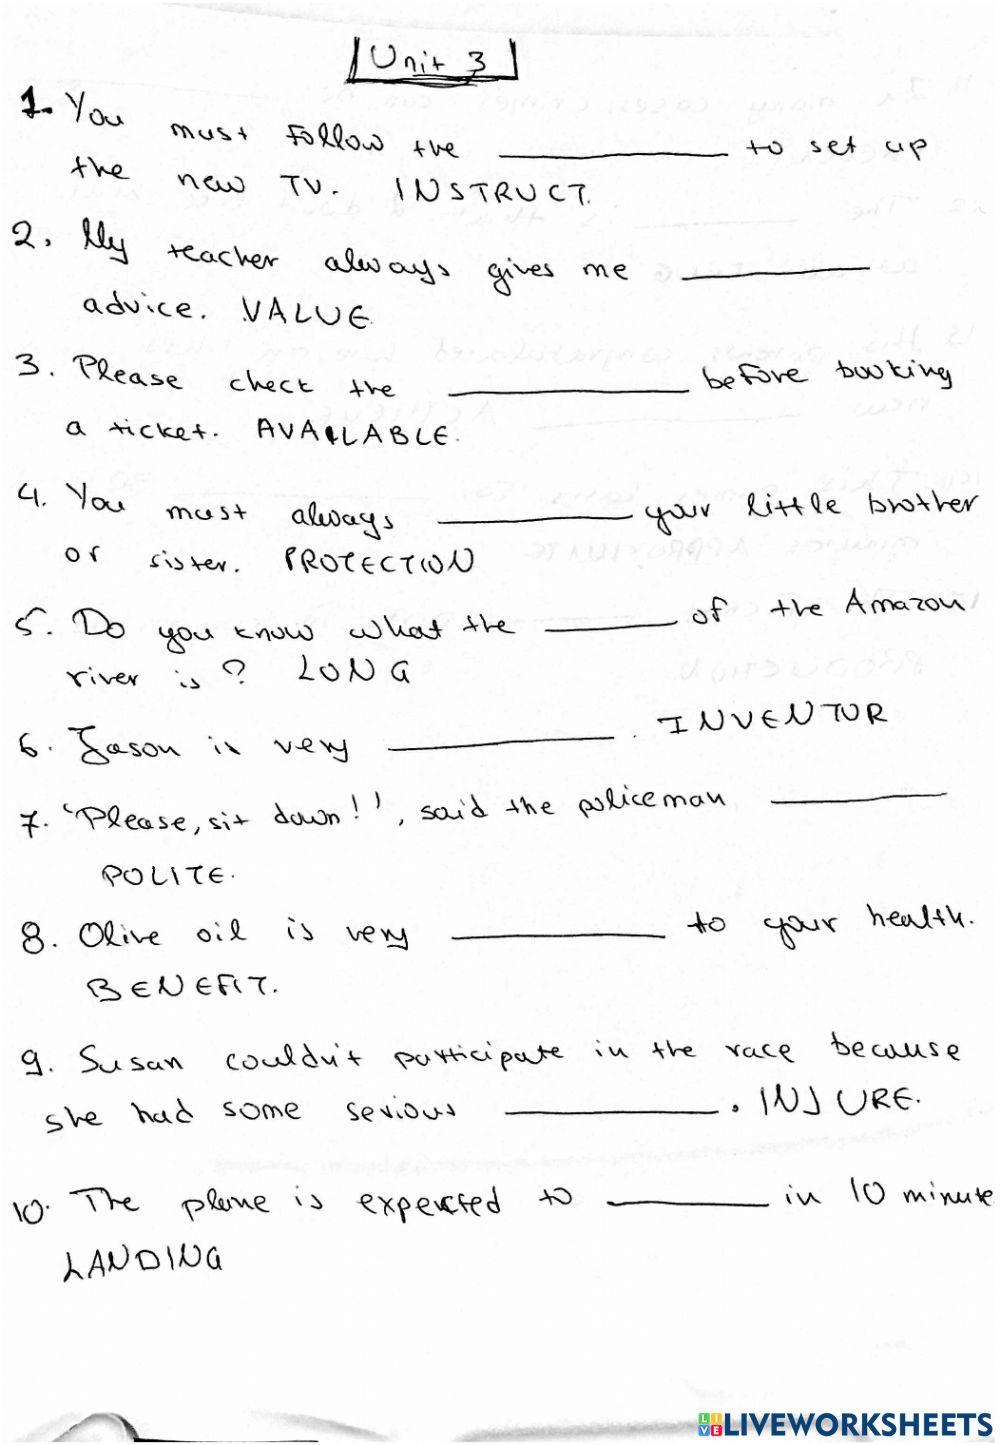 Unit 3
1. You must follow the __________ to set up
the new TV. INSTRUCT.
2. My teacher always gives me __________
advice. VALUE
3. Please check the __________ before booking
a ticket. AVAILABLE.
4. You must always __________ your little brother
or sister. PROTECTION
5. Do you know what the __________ of the Amazon
river is? LONG
6. Jason is very __________. INVENTOR
7. 'Please, sit down!', said the policeman __________
POLITE.
8. Olive oil is very __________ to your health.
BENEFIT.
9. Susan couldn't participate in the race because
she had some serious __________. INJURE.
10. The plane is expected to __________ in 10 minute
LANDING
LIVEWORKSHEETS